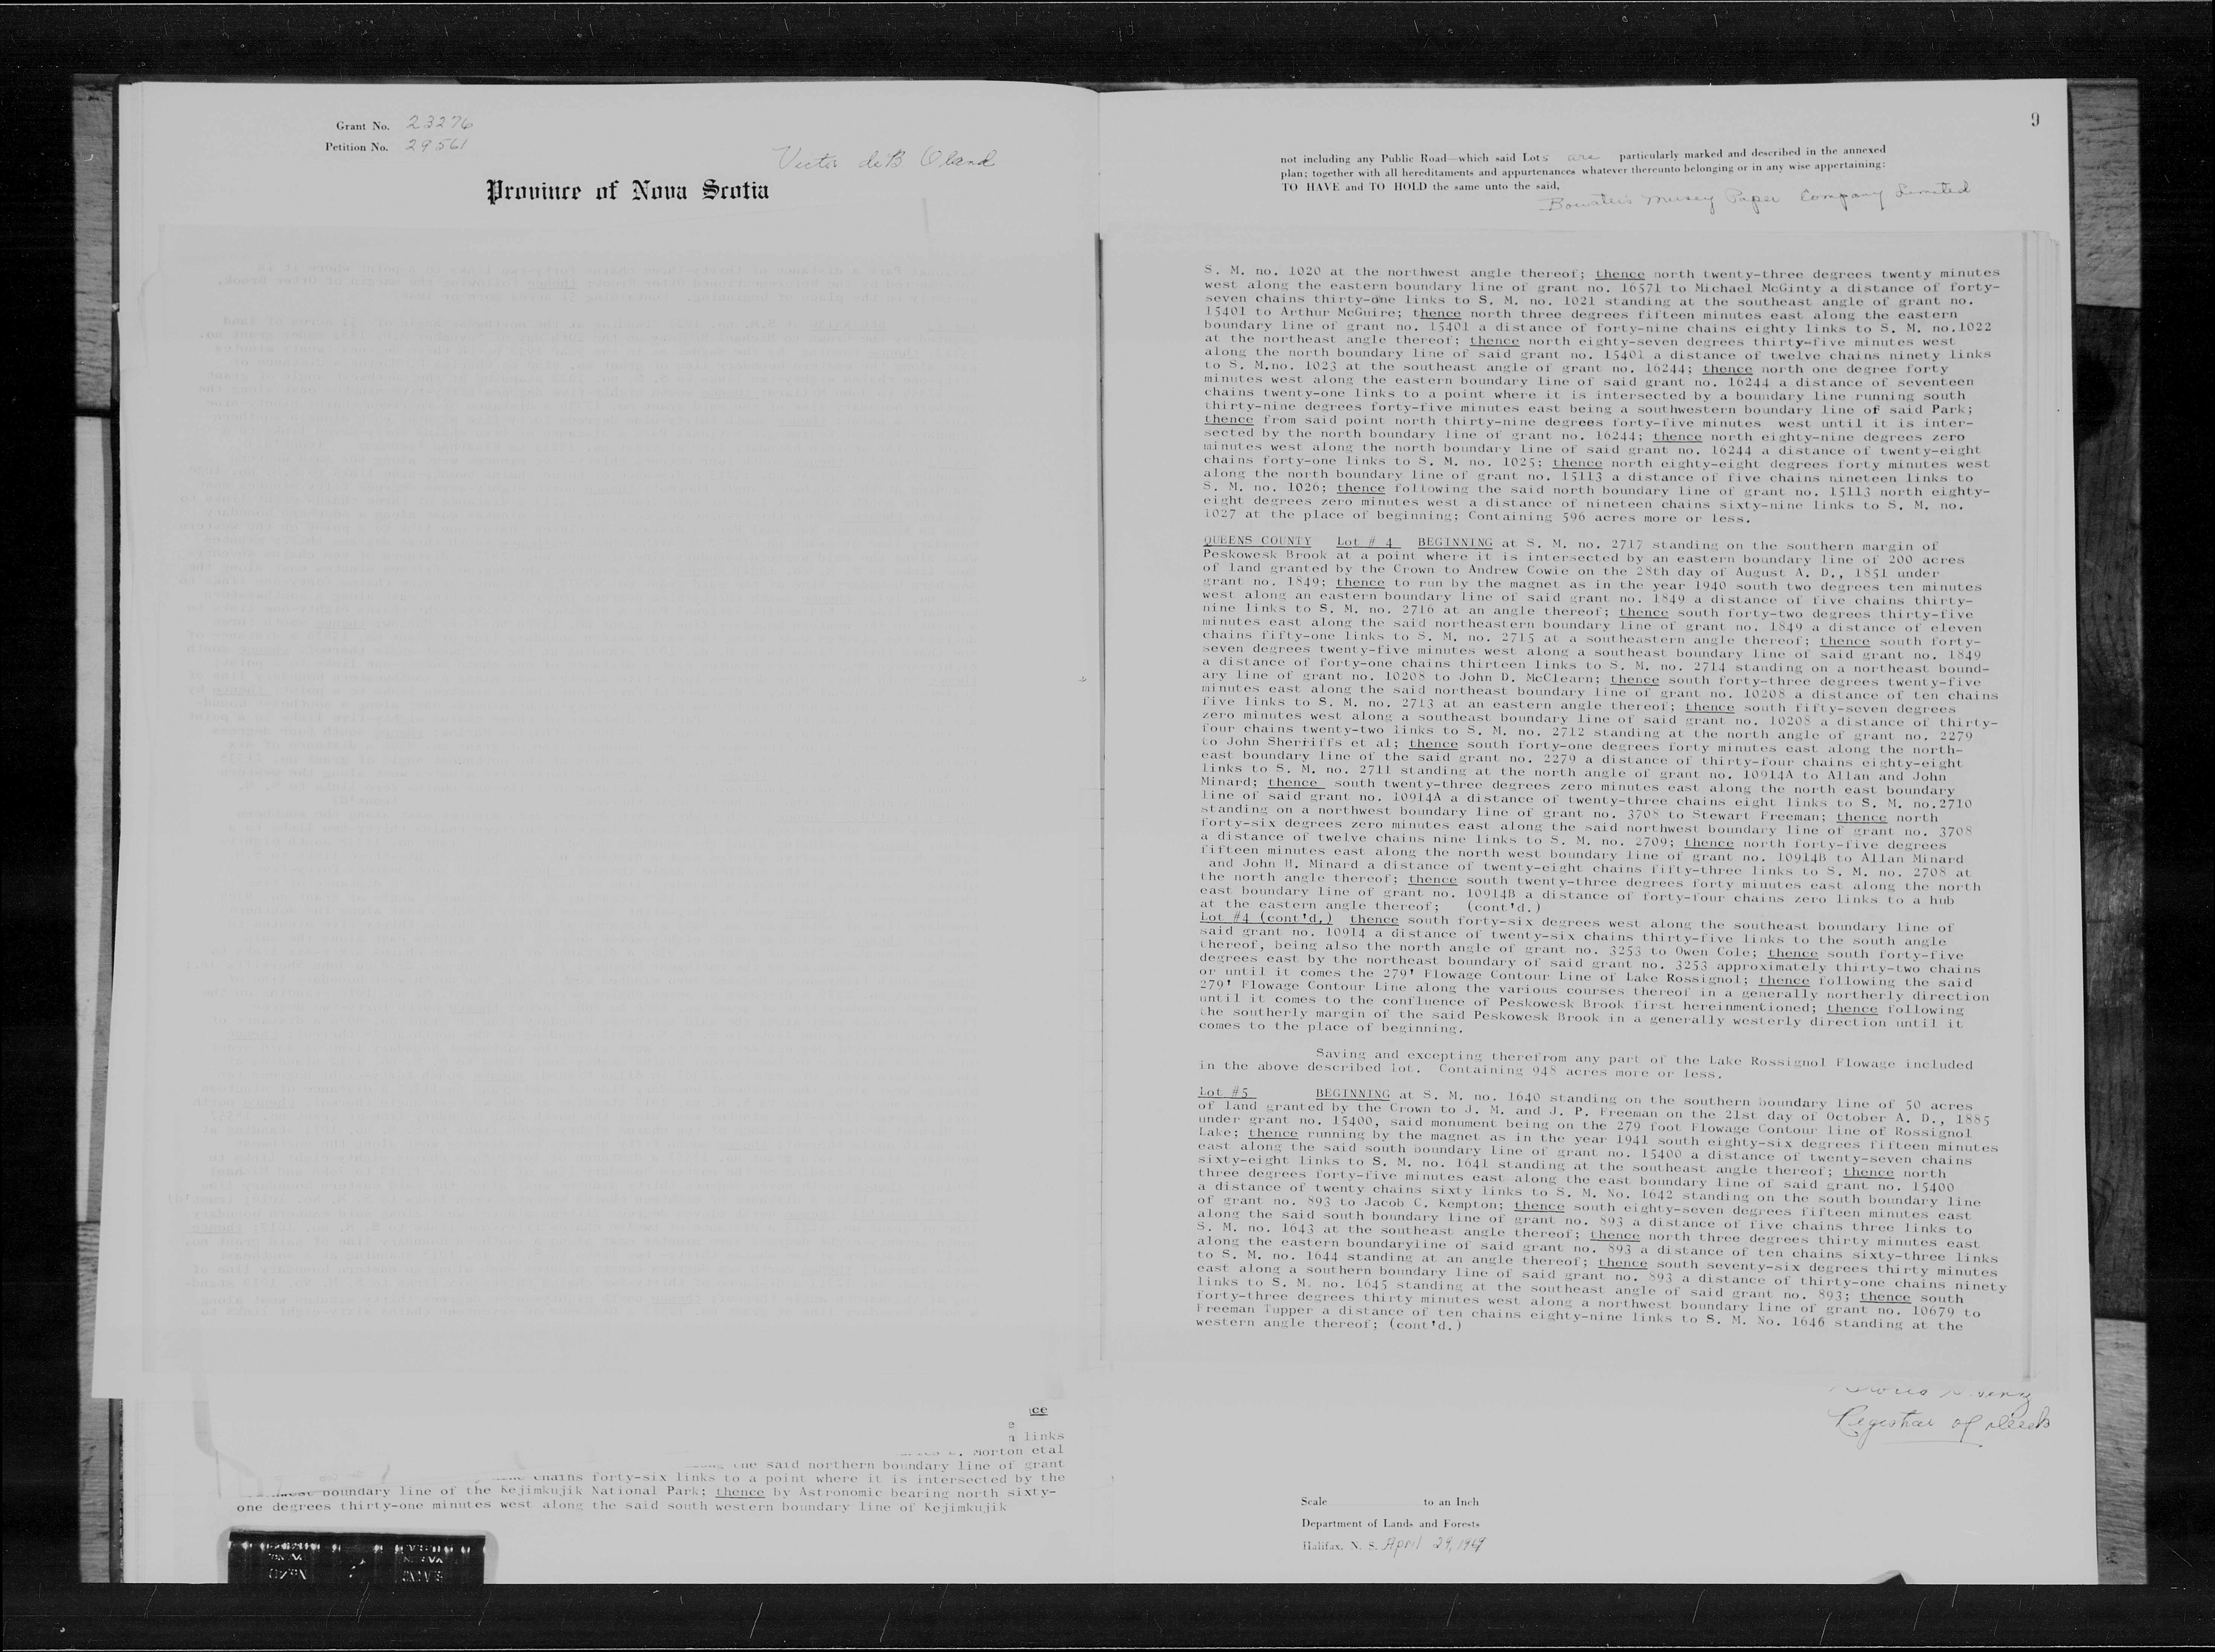 Grant No. 23276
Petition No. 29561
Victor deB Oland
Province of Nova Scotia
ce
e
n links
Morton etal
the said northern boundary line of grant
chains forty-six links to a point where it is intersected by the
boundary line of the Kejimkujik National Park; thence by Astronomic bearing north sixty-
one degrees thirty-one minutes west along the said south western boundary line of Kejimkujik
9
not including any Public Road—which said Lots are particularly marked and described in the annexed
plan; together with all hereditaments and appurtenances whatever thereunto belonging or in any wise appertaining:
TO HAVE and TO HOLD the same unto the said,
Bowaters Mersey Paper Company Limited
S. M. no. 1020 at the northwest angle thereof; thence north twenty-three degrees twenty minutes
west along the eastern boundary line of grant no. 16571 to Michael McGinty a distance of forty-
seven chains thirty-one links to S. M. no. 1021 standing at the southeast angle of grant no.
15401 to Arthur McGuire; thence north three degrees fifteen minutes east along the eastern
boundary line of grant no. 15401 a distance of forty-nine chains eighty links to S. M. no.1022
at the northeast angle thereof; thence north eighty-seven degrees thirty-five minutes west
along the north boundary line of said grant no. 15401 a distance of twelve chains ninety links
to S. M.no. 1023 at the southeast angle of grant no. 16244; thence north one degree forty
minutes west along the eastern boundary line of said grant no. 16244 a distance of seventeen
chains twenty-one links to a point where it is intersected by a boundary line running south
thirty-nine degrees forty-five minutes east being a southwestern boundary line of said Park;
thence from said point north thirty-nine degrees forty-five minutes west until it is inter-
sected by the north boundary line of grant no. 16244; thence north eighty-nine degrees zero
minutes west along the north boundary line of said grant no. 16244 a distance of twenty-eight
chains forty-one links to S. M. no. 1025; thence north eighty-eight degrees forty minutes west
along the north boundary line of grant no. 15113 a distance of five chains nineteen links to
S. M. no. 1026; thence following the said north boundary line of grant no. 15113 north eighty-
eight degrees zero minutes west a distance of nineteen chains sixty-nine links to S. M. no.
1027 at the place of beginning; Containing 596 acres more or less.
QUEENS COUNTY Lot # 4 BEGINNING at S. M. no. 2717 standing on the southern margin of
Peskowesk Brook at a point where it is intersected by an eastern boundary line of 200 acres
of land granted by the Crown to Andrew Cowie on the 28th day of August A. D., 1851 under
grant no. 1849; thence to run by the magnet as in the year 1940 south two degrees ten minutes
west along an eastern boundary line of said grant no. 1849 a distance of five chains thirty-
nine links to S. M. no. 2716 at an angle thereof; thence south forty-two degrees thirty-five
minutes east along the said northeastern boundary line of grant no. 1849 a distance of eleven
chains fifty-one links to S. M. no. 2715 at a southeastern angle thereof; thence south forty-
seven degrees twenty-five minutes west along a southeast boundary line of said grant no. 1849
a distance of forty-one chains thirteen links to S. M. no. 2714 standing on a northeast bound-
ary line of grant no. 10208 to John D. McClearn; thence south forty-three degrees twenty-five
minutes east along the said northeast boundary line of grant no. 10208 a distance of ten chains
five links to S. M. no. 2713 at an eastern angle thereof; thence south fifty-seven degrees
zero minutes west along a southeast boundary line of said grant no. 10208 a distance of thirty-
four chains twenty-two links to S. M. no. 2712 standing at the north angle of grant no. 2279
to John Sherriffs et al; thence south forty-one degrees forty minutes east along the north-
east boundary line of the said grant no. 2279 a distance of thirty-four chains eighty-eight
links to S. M. no. 2711 standing at the north angle of grant no. 10914A to Allan and John
Minard; thence south twenty-three degrees zero minutes east along the north east boundary
line of said grant no. 10914A a distance of twenty-three chains eight links to S. M. no.2710
standing on a northwest boundary line of grant no. 3708 to Stewart Freeman; thence north
forty-six degrees zero minutes east along the said northwest boundary line of grant no. 3708
a distance of twelve chains nine links to S. M. no. 2709; thence north forty-five degrees
fifteen minutes east along the north west boundary line of grant no. 10914B to Allan Minard
and John H. Minard a distance of twenty-eight chains fifty-three links to S. M. no. 2708 at
the north angle thereof; thence south twenty-three degrees forty minutes east along the north
east boundary line of grant no. 10914B a distance of forty-four chains zero links to a hub
at the eastern angle thereof; (cont'd.)
Lot #4 (cont'd.) thence south forty-six degrees west along the southeast boundary line of
said grant no. 10914 a distance of twenty-six chains thirty-five links to the south angle
thereof, being also the north angle of grant no. 3253 to Owen Cole; thence south forty-five
degrees east by the northeast boundary of said grant no. 3253 approximately thirty-two chains
or until it comes the 279' Flowage Contour Line of Lake Rossignol; thence following the said
279' Flowage Contour Line along the various courses thereof in a generally northerly direction
until it comes to the confluence of Peskowesk Brook first hereinmentioned; thence following
the southerly margin of the said Peskowesk Brook in a generally westerly direction until it
comes to the place of beginning.
Saving and excepting therefrom any part of the Lake Rossignol Flowage included
in the above described lot. Containing 948 acres more or less.
Lot #5 BEGINNING at S. M. no. 1640 standing on the southern boundary line of 50 acres
of land granted by the Crown to J. M. and J. P. Freeman on the 21st day of October A. D., 1885
under grant no. 15400, said monument being on the 279 foot Flowage Contour line of Rossignol
Lake; thence running by the magnet as in the year 1941 south eighty-six degrees fifteen minutes
east along the said south boundary line of grant no. 15400 a distance of twenty-seven chains
sixty-eight links to S. M. no. 1641 standing at the southeast angle thereof; thence north
three degrees forty-five minutes east along the east boundary line of said grant no. 15400
a distance of twenty chains sixty links to S. M. No. 1642 standing on the south boundary line
of grant no. 893 to Jacob C. Kempton; thence south eighty-seven degrees fifteen minutes east
along the said south boundary line of grant no. 893 a distance of five chains three links to
S. M. no. 1643 at the southeast angle thereof; thence north three degrees thirty minutes east
along the eastern boundaryline of said grant no. 893 a distance of ten chains sixty-three links
to S. M. no. 1644 standing at an angle thereof; thence south seventy-six degrees thirty minutes
east along a southern boundary line of said grant no. 893 a distance of thirty-one chains ninety
links to S. M. no. 1645 standing at the southeast angle of said grant no. 893; thence south
forty-three degrees thirty minutes west along a northwest boundary line of grant no. 10679 to
Freeman Tupper a distance of ten chains eighty-nine links to S. M. No. 1646 standing at the
western angle thereof; (cont'd.)
Registrar of Deeds
Scale to an Inch
Department of Lands and Forests
Halifax, N. S. April 24, 1969